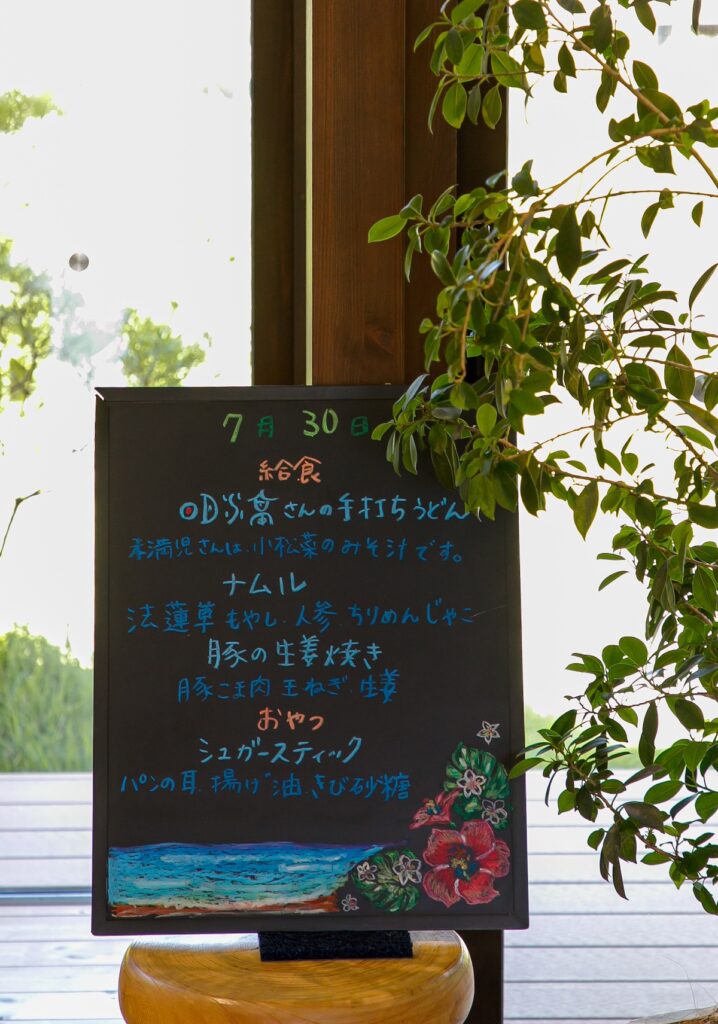 7月 30日
給食
さんの手打ちうどん
未満児さんは、小松菜のみそ汁です。
ナムル
法蓮草 もやし、人参、ちりめんじゃこ
豚の生姜焼き
豚こま肉 玉ねぎ、生姜
おやつ
シュガースティック
パンの耳、揚げ油、きび砂糖